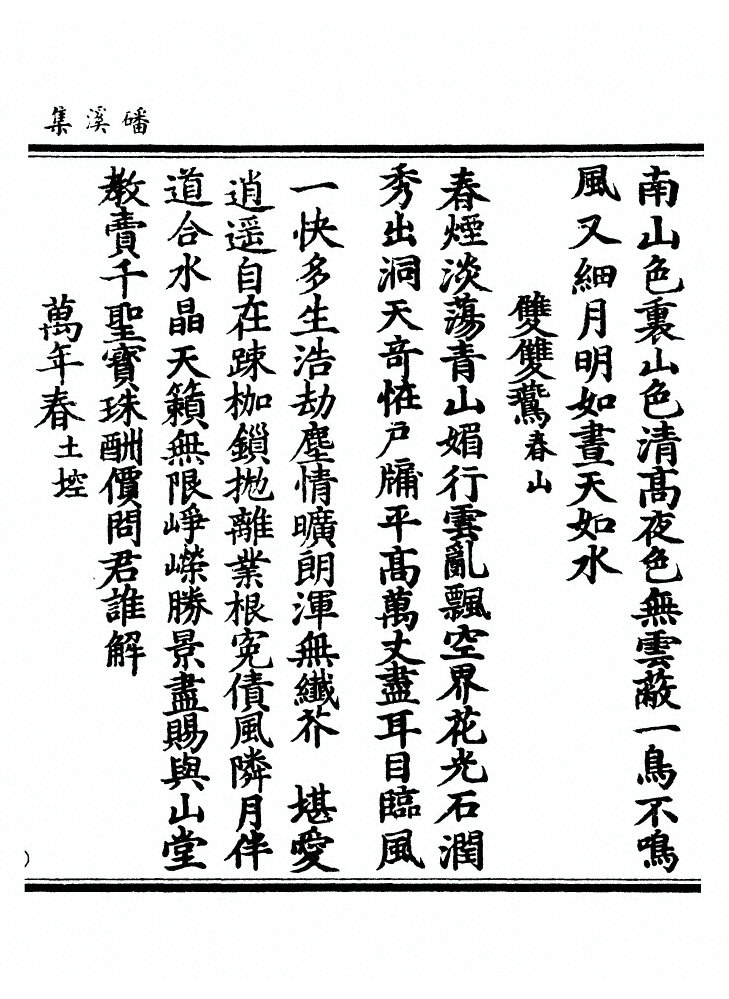 磻溪集
南山色裏山色清髙夜色無雲蔽一鳥不鳴
風又細月明如晝天如水
雙雙鷰春山
春煙淡蕩青山媚行雲亂飄空界花光石潤
秀出洞天竒恠户牖平髙萬丈盡耳目臨風
一快多生浩劫塵情曠朗渾無纖芥　堪愛
逍遥自在踈枷鎖抛離業根寃債風隣月伴
道合水晶天籟無限崢嶸勝景盡賜與山堂
教賣千聖寳珠酬價問君誰解
萬年春土控